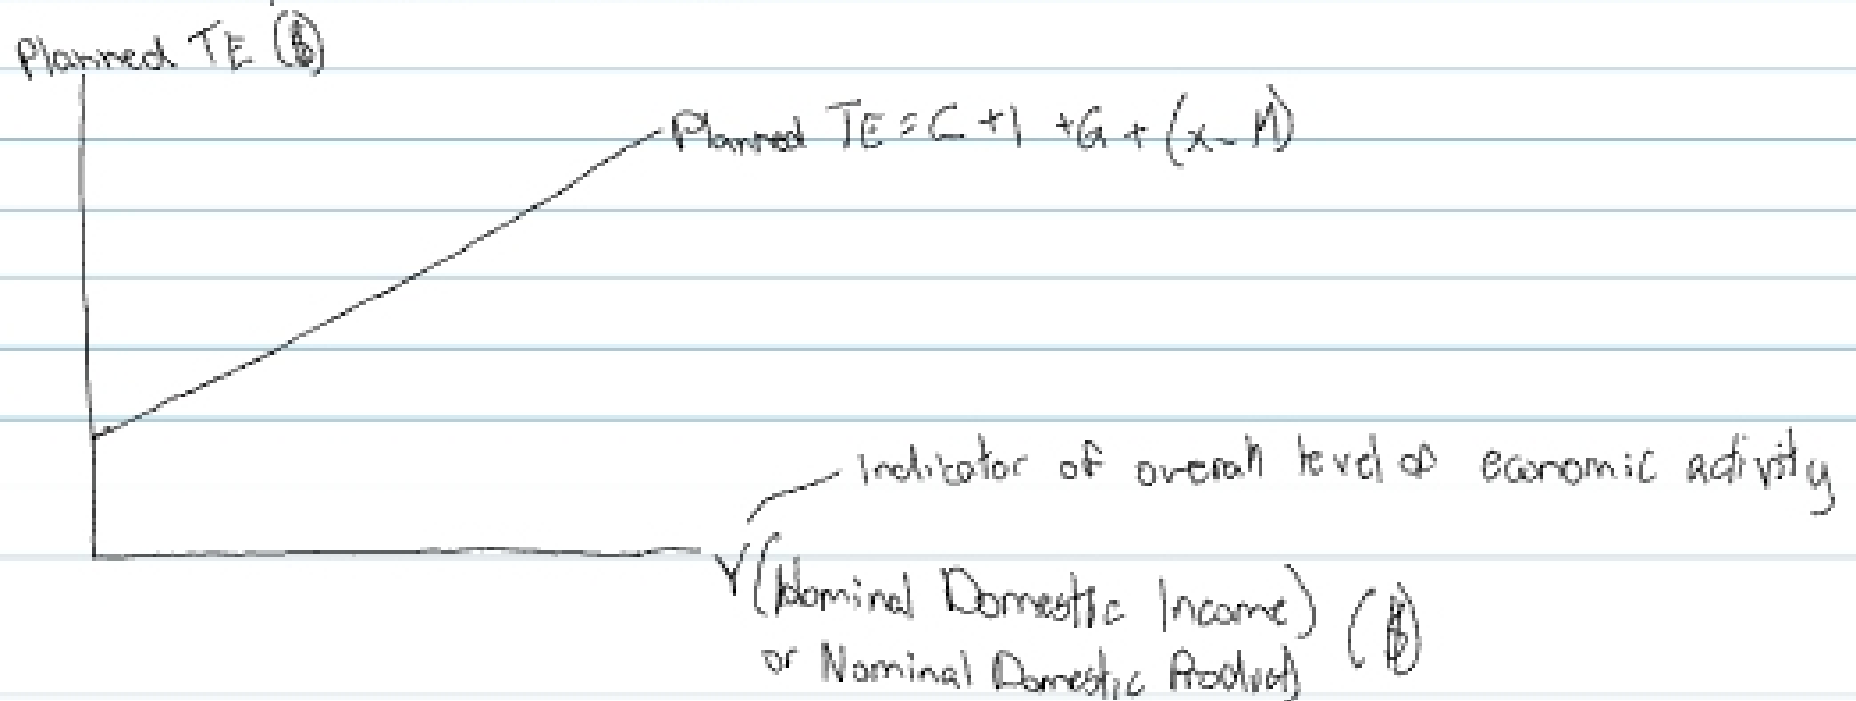 Planned TE ($)
Planned TE = C + I + G + (X - M)
Indicator of overall level of economic activity
Y (Nominal Domestic Income) ($)
or Nominal Domestic Product